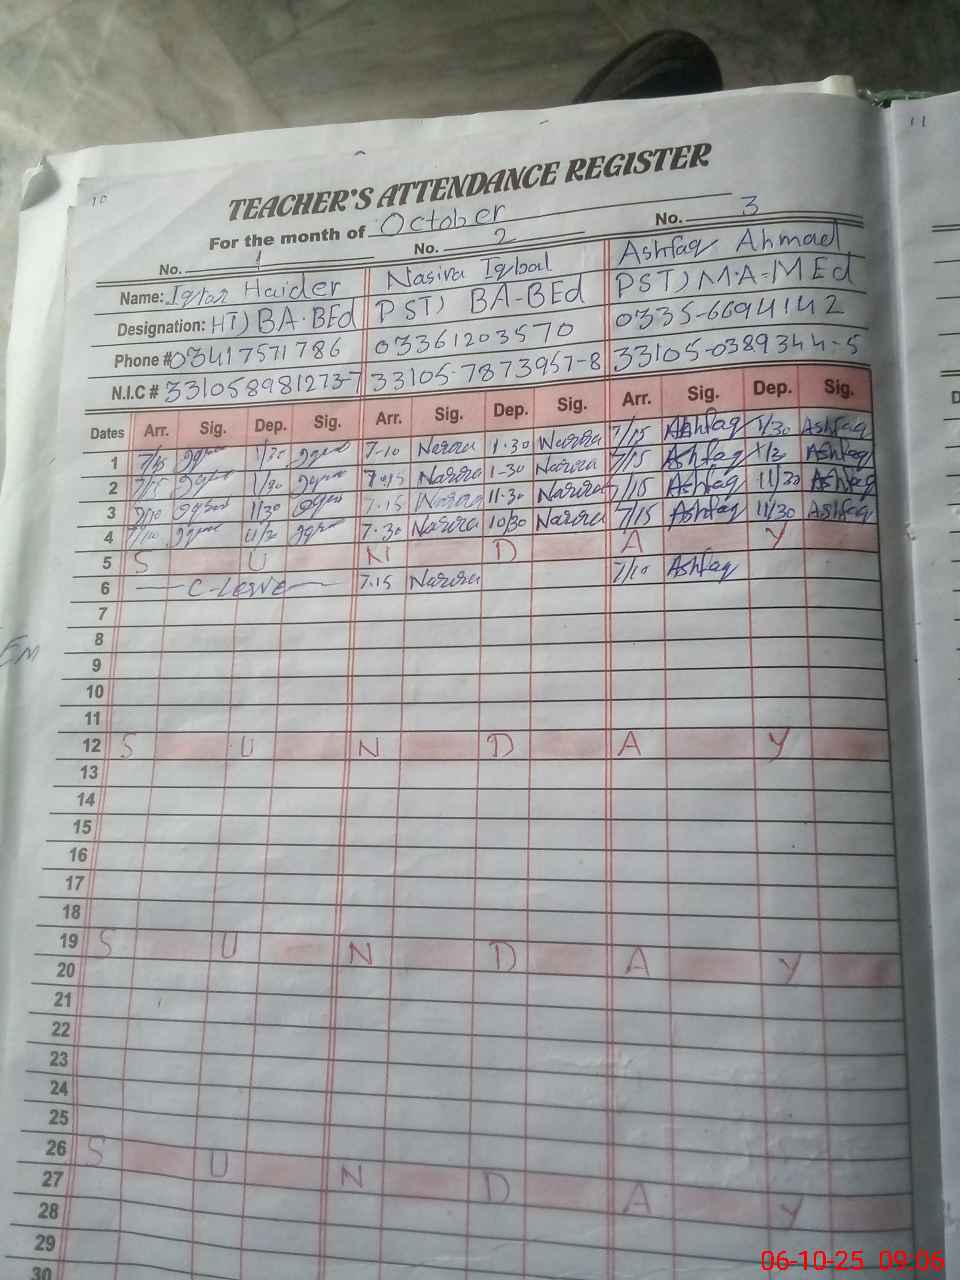 10
11
TEACHER'S ATTENDANCE REGISTER
For the month of October
No. 1 No. 2 No. 3
Name: Haider Nasira Iqbal Ashfaq Ahmad
Designation: HT) BA.BEd PST) BA-BEd PST) M.A-MEd
Phone # 03417571786 03361203570 0335-6694142
N.I.C # 331058981273-7 33105-7873957-8 33105-0389344-5
Dates Arr. Sig. Dep. Sig. Arr. Sig. Dep. Sig. Arr. Sig. Dep. Sig.
1 7/15 1/30 7-10 1.30 7/15 Ashfaq 1/30 Ashfaq
2 7/15 1/30 7.15 1-30 7/15 Ashfaq 1/30 Ashfaq
3 7/10 11/30 7.15 11.30 7/15 Ashfaq 11/30 Ashfaq
4 7/10 7.30 10/30 7/15 Ashfaq 11/30 Ashfaq
5 S U N D A Y
6 7.15 7/10 Ashfaq
7
8
9
10
11
12 S U N D A Y
13
14
15
16
17
18
19 S U N D A Y
20
21
22
23
24
25
26 S U N D A Y
27
28
29
30
06-10-25 09:06